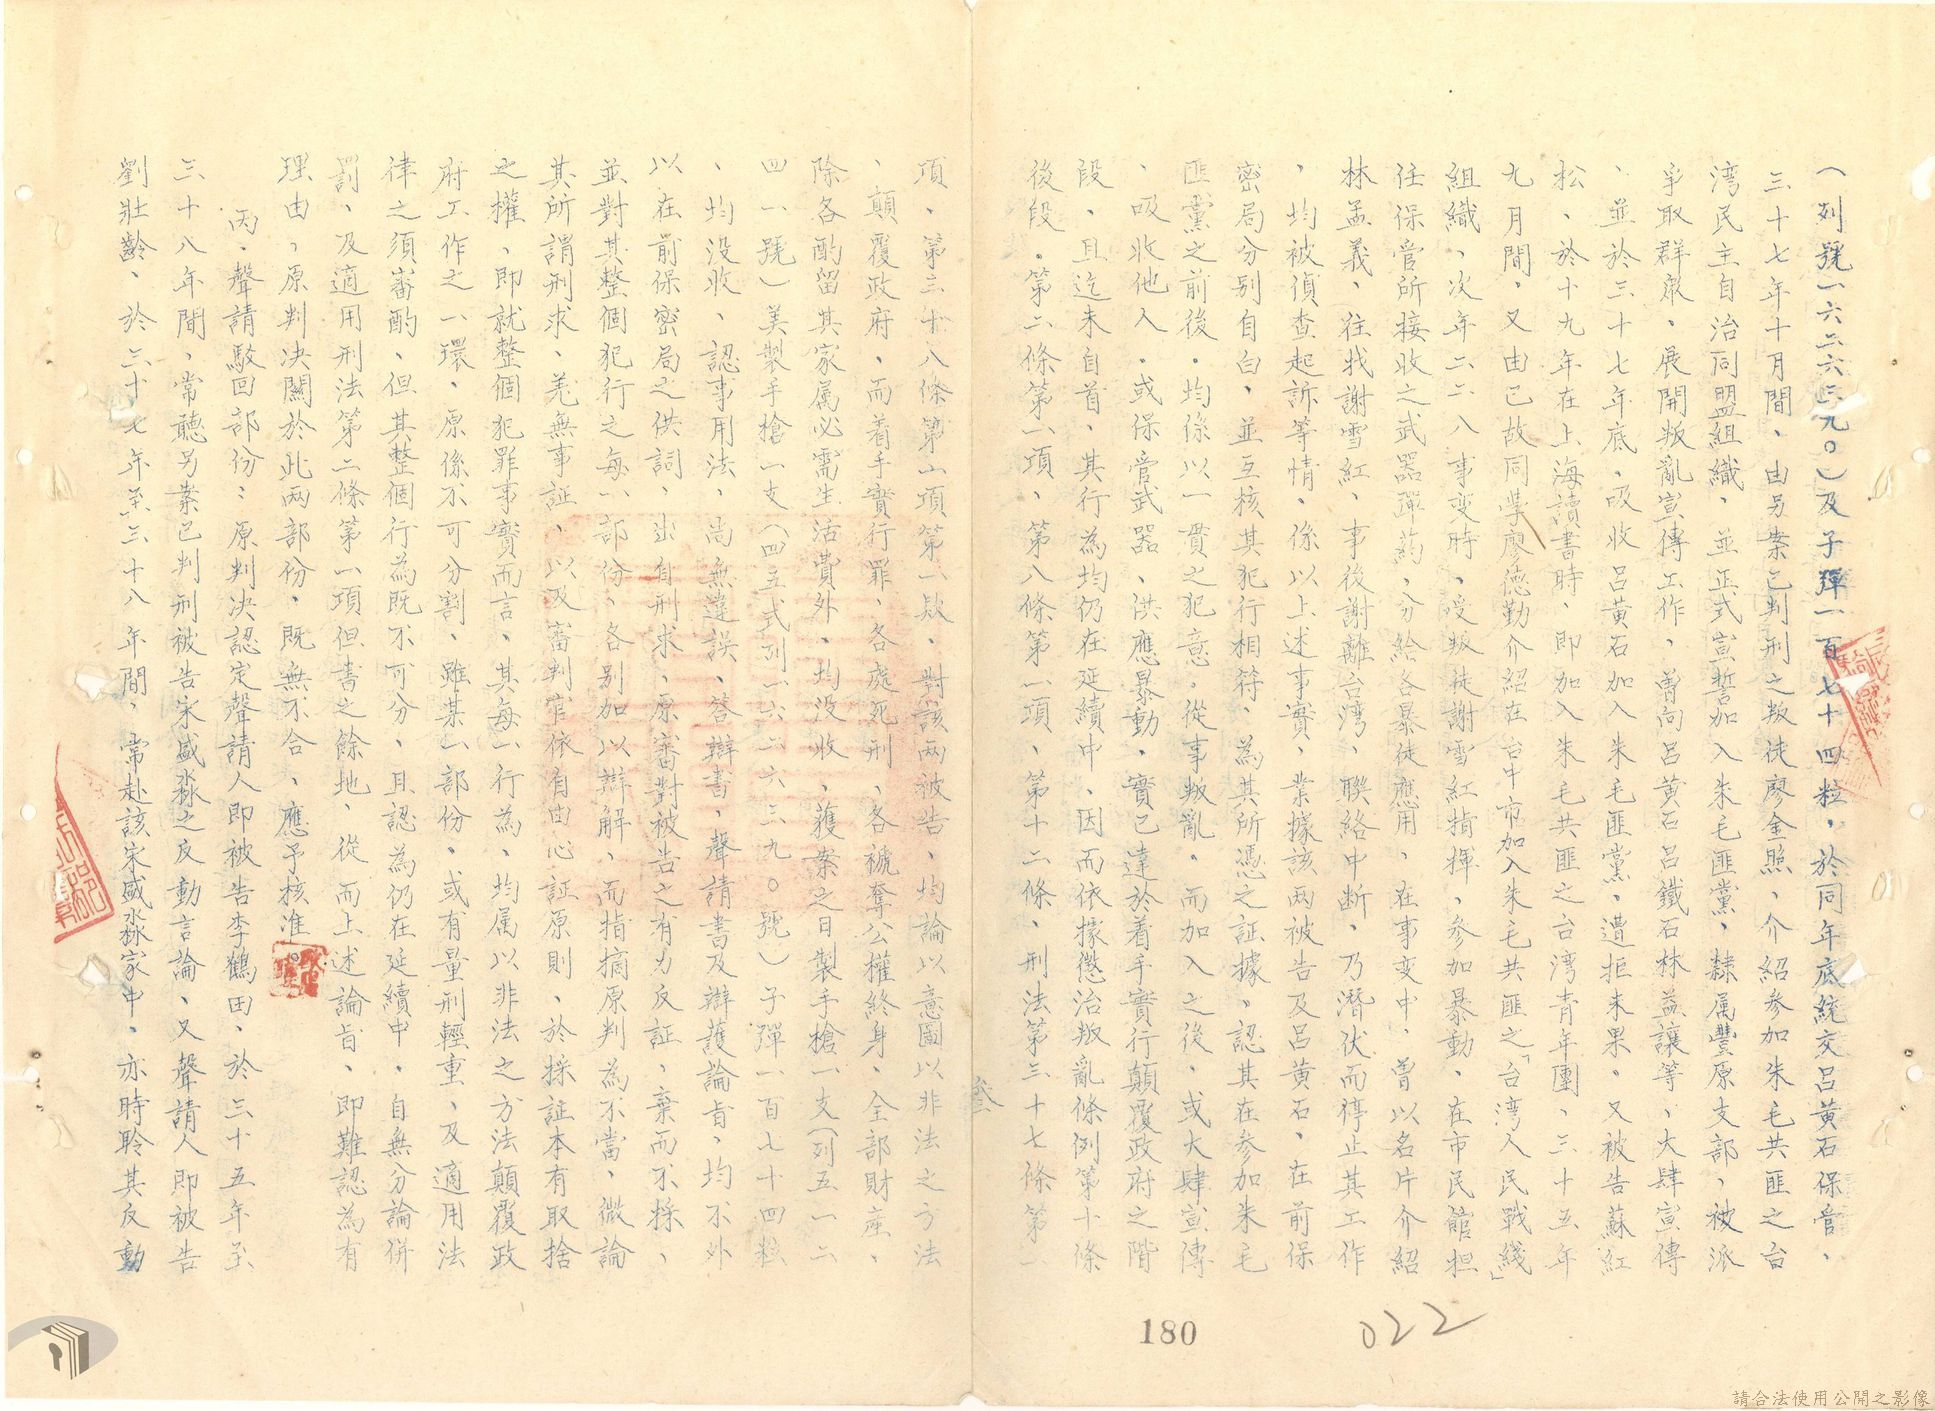 （列號一六二六六三九〇）及子彈一百七十四粒，於同年底統交呂黃石保管、
三十七年十月間、由另案已判刑之叛徒廖金照、介紹參加朱毛共匪之台
湾民主自治同盟組織、並正式宣誓加入朱毛匪黨、隸属豐原支部、被派
爭取群眾、展開叛亂宣傳工作、曾向呂黃石呂鐵石林益讓等、大肆宣傳
、並於三十七年底、吸收呂黃石加入朱毛匪黨、遭拒未果。又被告蘇紅
松、於十九年在上海讀書時、即加入朱毛共匪之台湾青年團、三十五年
九月間、又由已故同學廖德勤介紹在台中市加入朱毛共匪之「台湾人民戰綫」
組織、次年二二八事变時、受叛徒謝雪紅指揮、參加暴動、在市民館担
任保管所接收之武器彈药、分給各暴徒應用、在事变中、曾以名片介紹
林孟義、往找謝雪紅、事後謝離台湾、聯絡中断、乃潛伏而停止其工作
、均被偵查起訴等情、係以上述事實、業據該两被告及呂黃石、在前保
密局分别自白、並互核其犯行相符、為其所憑之証據、認其在參加朱毛
匪黨之前後。均係以一貫之犯意。從事叛亂。而加入之後、或大肆宣傳
、吸收他人。或保管武器、供應暴動、實已達於着手實行顛覆政府之階
段、且迄未自首、其行為均仍在延續中、因而依據懲治叛亂條例第十條
後段。第二條第一項、第八條第一項、第十二條、刑法第三十七條第一
項、第三十八條第一項第一款、對該两被告、均論以意圖以非法之方法
、顛覆政府、而着手實行罪、各處死刑、各褫奪公權終身、全部財產、
除各酌留其家属必需生活費外、均没收、獲案之日製手槍一支（列五一二
四一號）美製手槍一支（四五式列一六二六六三九〇號）子彈一百七十四粒
、均没收、認事用法、尚無違誤、答辯書、聲請書及辯護論旨、均不外
以在前保密局之供詞、出自刑求、原審對被告之有力反証、棄而不採、
並對其整個犯行之每一部份、各别加以辯解、而指摘原判為不當、微論
其所謂刑求、羌無事証、以及審判官依自由心証原則、於採証本有取捨
之權、即就整個犯罪事實而言、其每一行為、均属以非法之方法顛覆政
府工作之一環、原係不可分割、雖某一部份、或有量刑輕重、及適用法
律之須審酌、但其整個行為既不可分、且認為仍在延續中、自無分論併
罰、及適用刑法第二條第一項但書之餘地、從而上述論旨、即難認為有
理由，原判决關於此两部份、既無不合、應予核准。
丙、聲請駁回部份：原判决認定聲請人即被告李鶴田、於三十五年至
三十八年間、常聽另案已判刑被告宋盛淼之反動言論、又聲請人即被告
劉壯齡、於三十七年至三十八年間、常赴該宋盛淼家中、亦時聆其反動
叁
180
022
請合法使用公開之影像